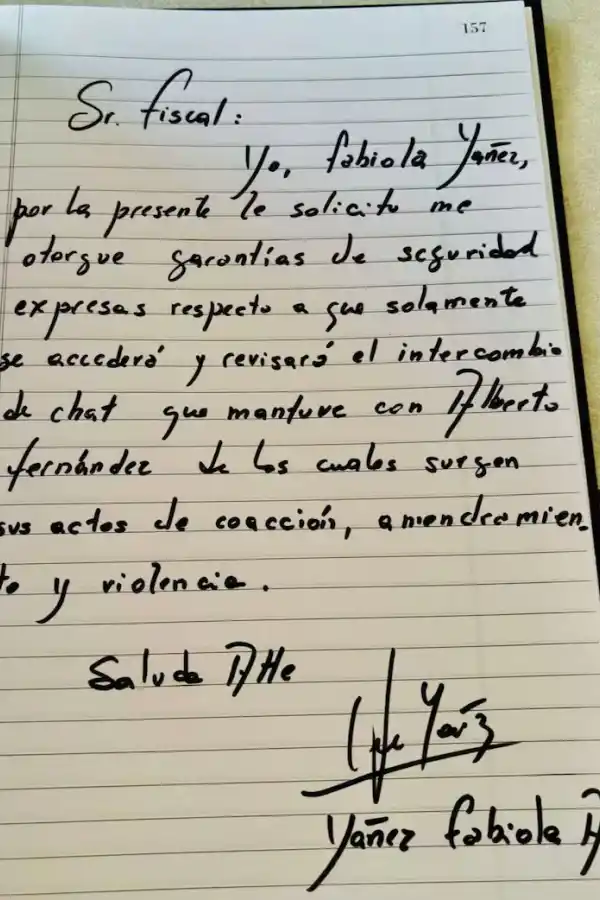 157
Sr. fiscal:
Yo, fabiola Yañez,
por la presente le solicito me
otorgue garantías de seguridad
expresas respecto a que solamente
se accederá y revisará el intercambio
de chat que mantuve con Alberto
fernández de los cuales surgen
sus actos de coacción, amendramien_
to y violencia.
Saluda Atte
Yañez fabiola A